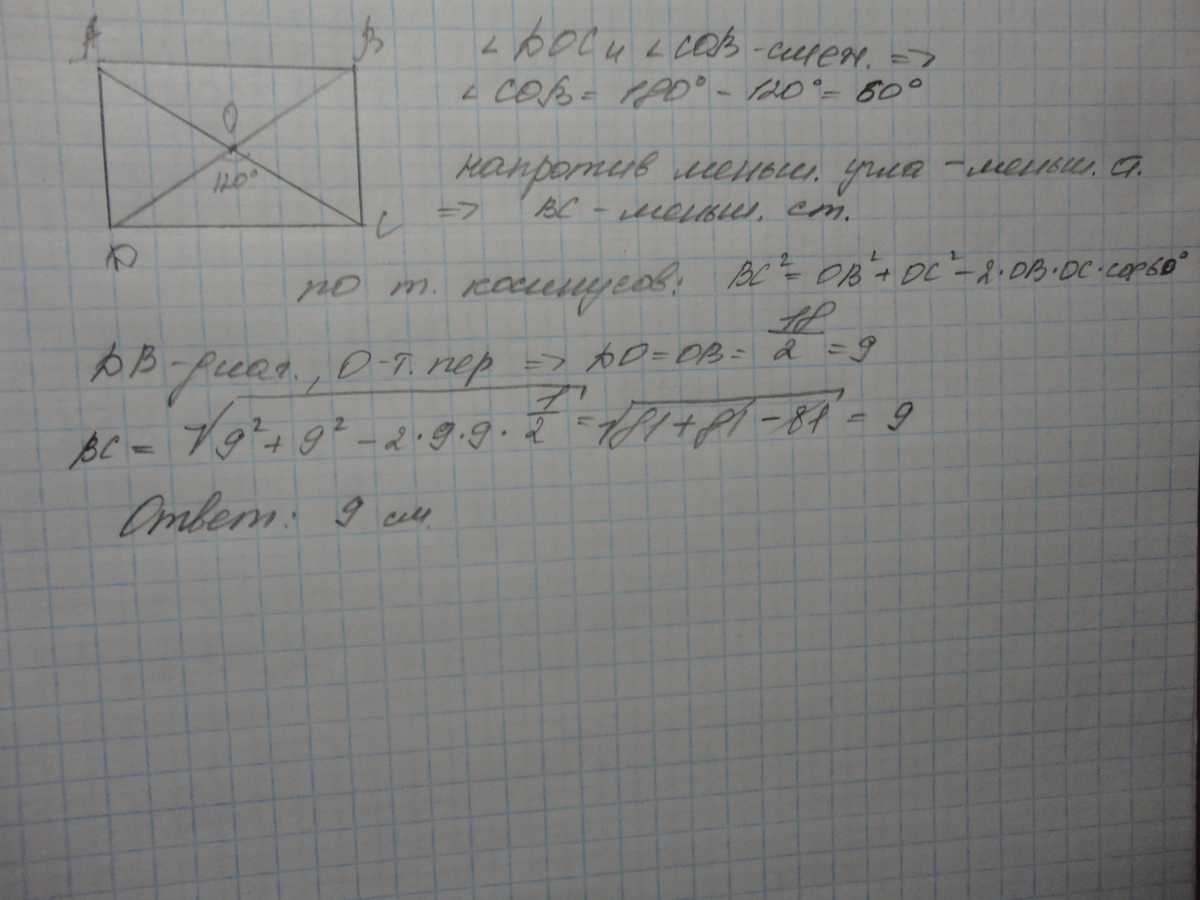 A B
∠ DOC и ∠ COB - смеж. =>
∠ COB = 180° - 120° = 60°
O
120°
D C
напротив меньш. угла - меньш. ст.
=> BC - меньш. ст.
по т. косинусов: BC² = OB² + OC² - 2·OB·OC·cos60°
DB - диаг., O - т. пер => DO = OB = 18/2 = 9
BC = √(9² + 9² - 2·9·9·1/2) = √(81 + 81 - 81) = 9
Ответ: 9 см.